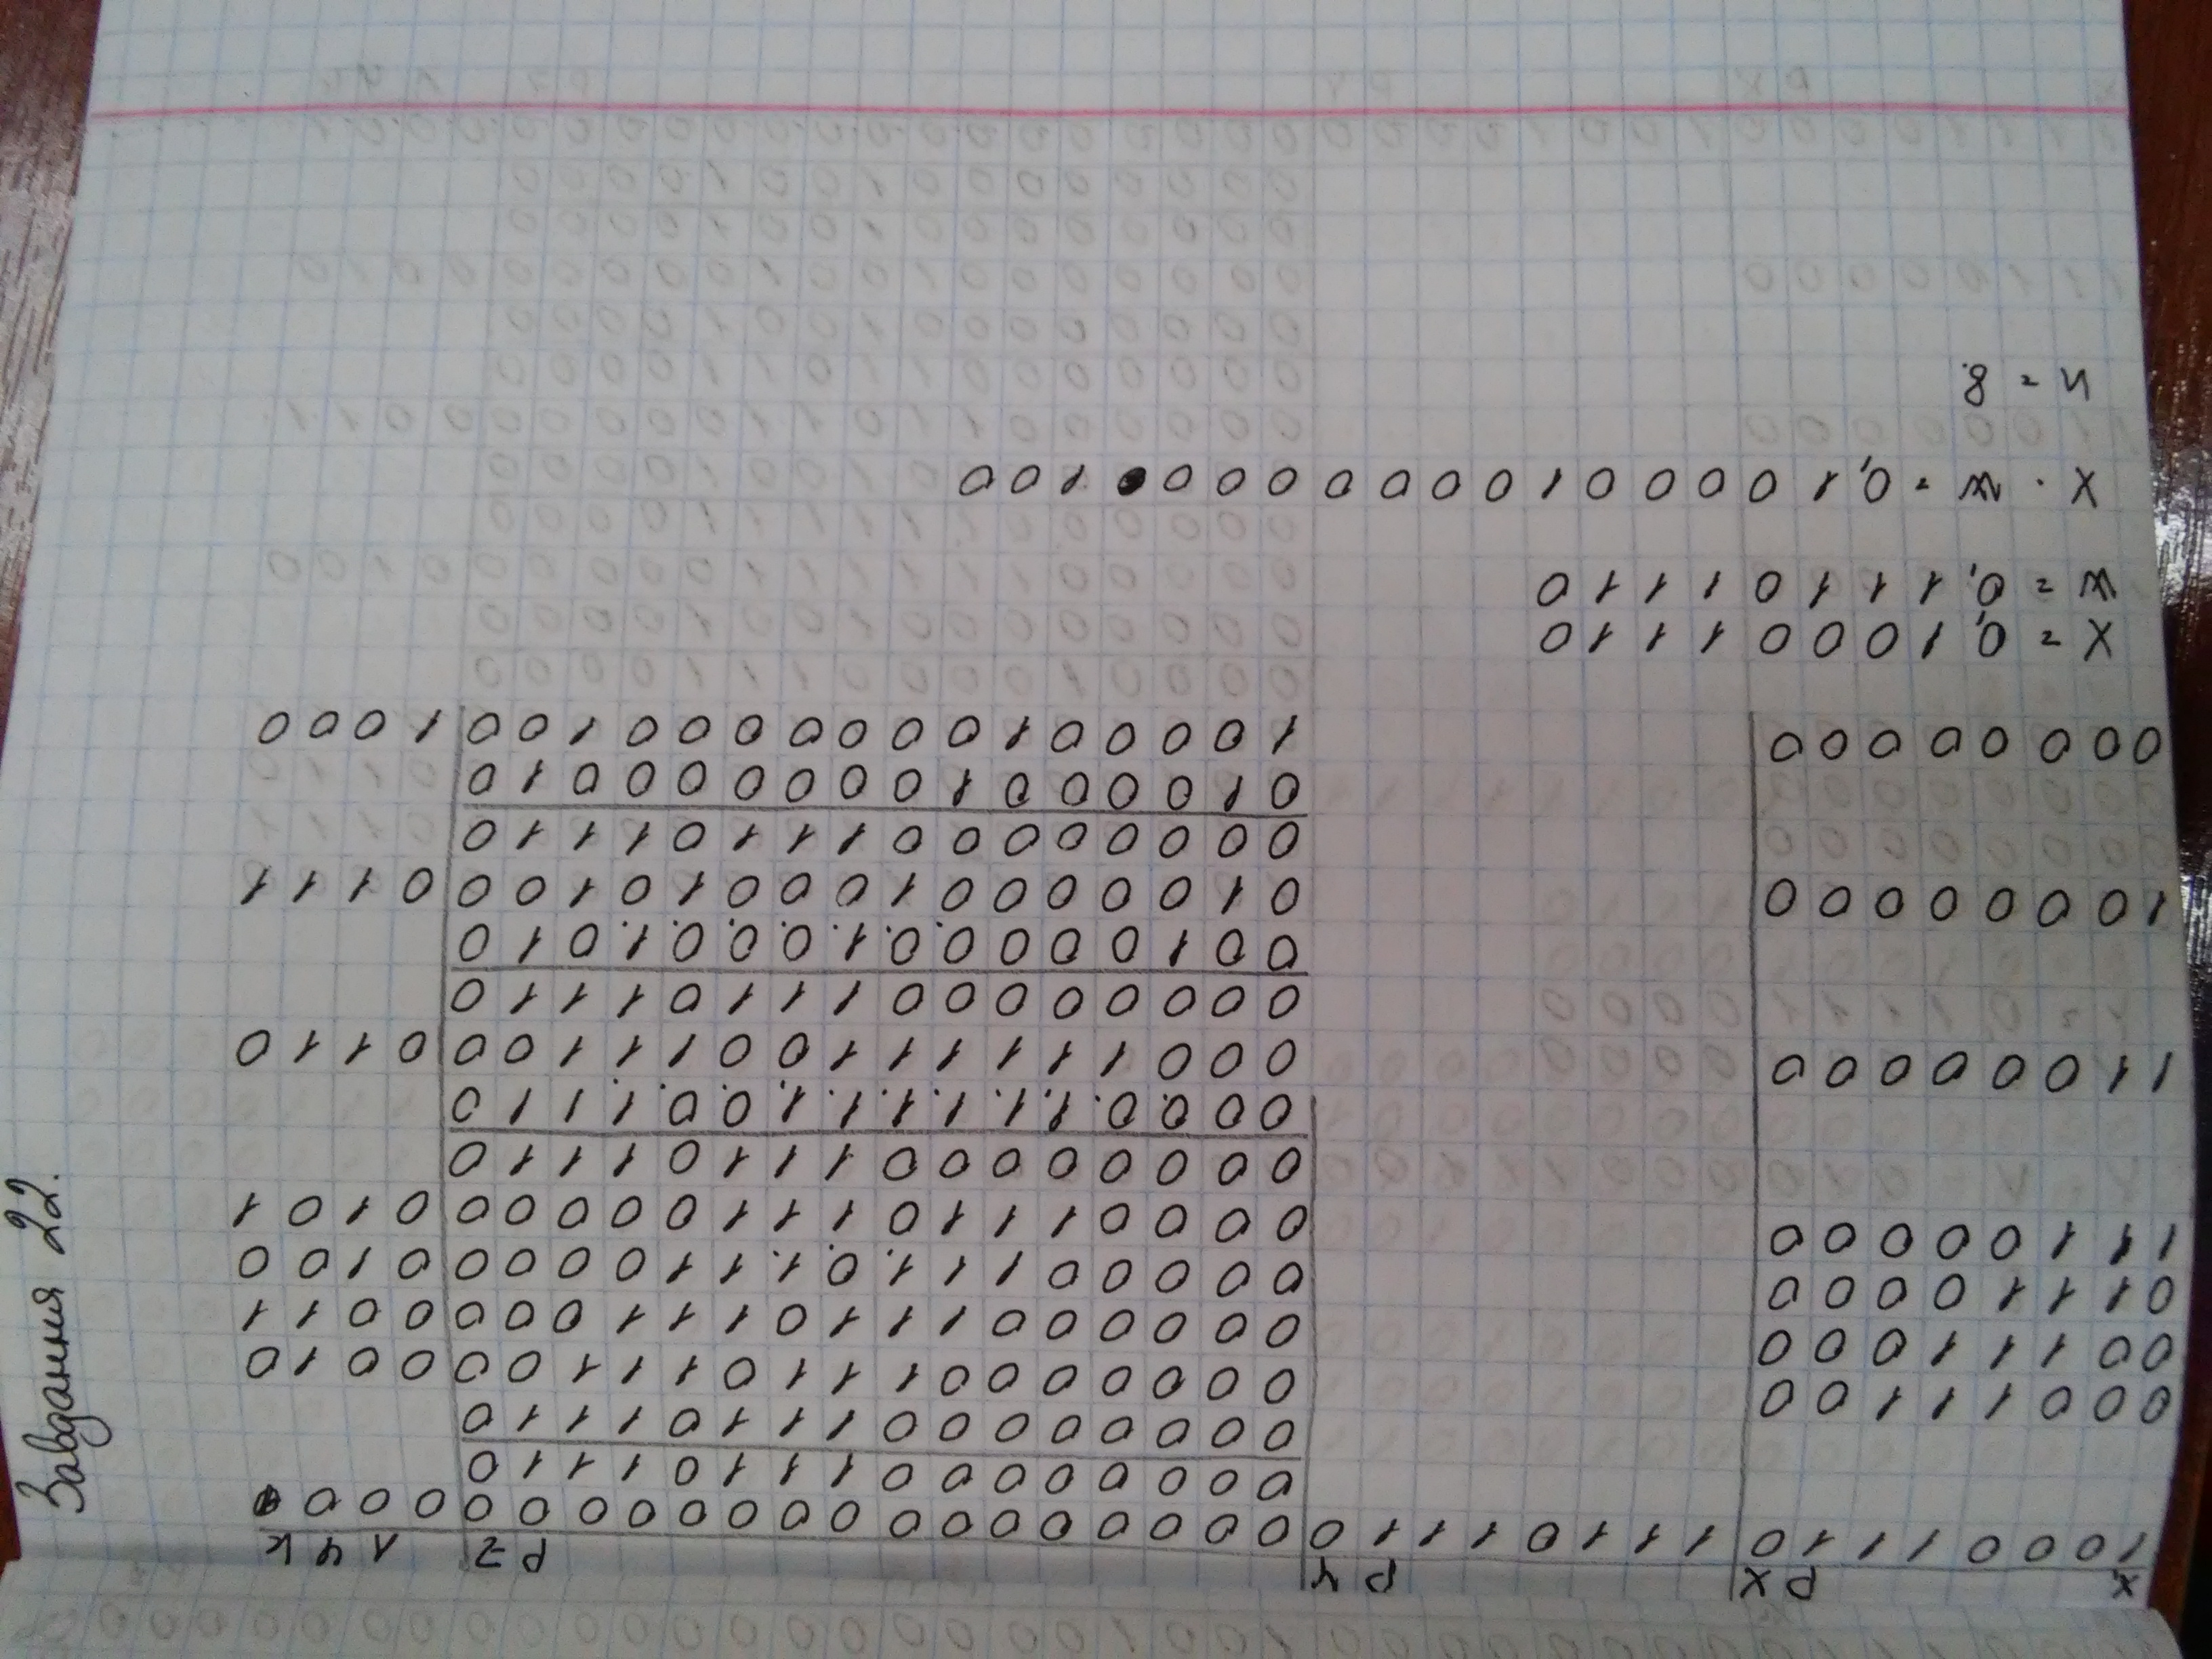 X, PX PY PZ 1 4 K
10001110 11101110 0000000000000000 000
0000000011101110
0000000011101110
00011100 0000000111011100 0010
00111000 0000001110111000 0011
01110000 000001110.1.110000 0100
11100000 0000111011100000 0101
0000000011101110
000.0.1.1.1.1.1.1.0.0.1.110
11000000 0001111110011100 0110
0000000011101110
0010000.0.1.0.0.0.1.010
10000000 0100000100010100 0111
0000000011101110
0100001000000010
00000000 1000010000000100 1000
X = 0,10001110
W = 0,11101110
X · W = 0,1000010000000100
n = 8.
Завдання 22.